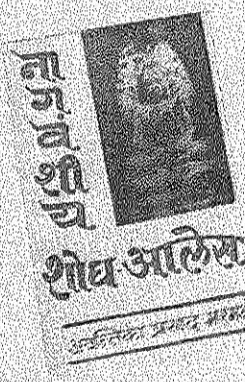 नागवंशीय
शोध-आलेख